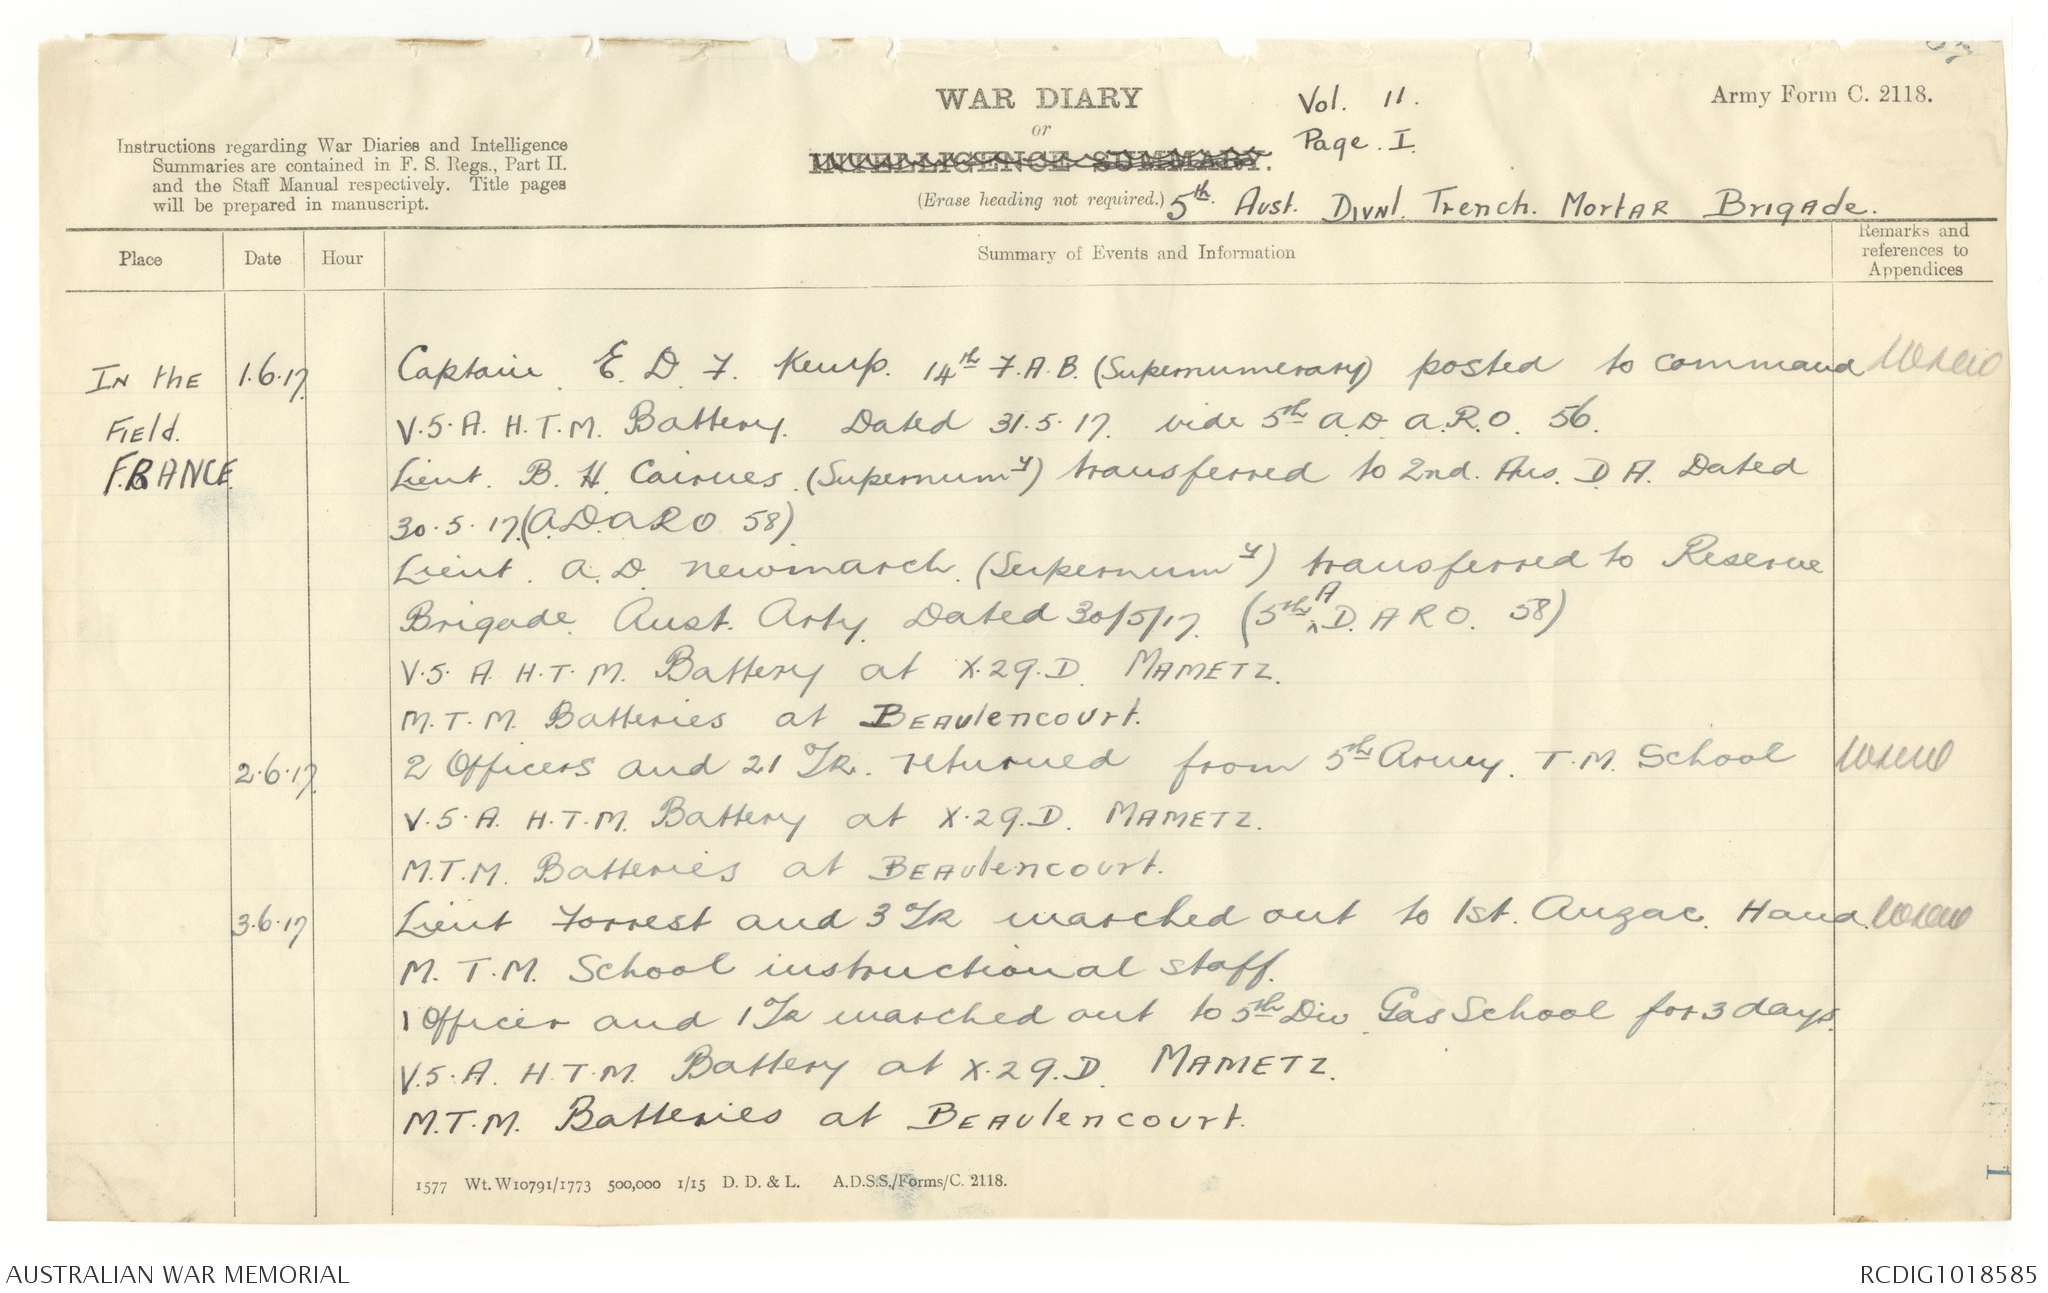 WAR DIARY
or
INTELLIGENCE SUMMARY.
(Erase heading not required.)
Vol. 11.
Page. I.
Army Form C. 2118.
Instructions regarding War Diaries and Intelligence
Summaries are contained in F. S. Regs., Part II.
and the Staff Manual respectively. Title pages
will be prepared in manuscript.
5th. Aust. Divnl. Trench. Mortar Brigade.
Place Date Hour Summary of Events and Information Remarks and
references to
Appendices
In the 1.6.17. Captain E. D. F. Kemp. 14th F.A.B. (Supernumerary) posted to command
Field. V.5.A. H.T.M. Battery. Dated 31.5.17. vide 5th A.D.A.R.O. 56.
FRANCE. Lieut. B. H. Cairnes. (Supernumy) transferred to 2nd. Aus. D. A. Dated
30.5.17.(A.D.A.R.O 58).
Lieut. A. D. Newmarch. (Supernumy) transferred to Reserve
Brigade. Aust. Arty. Dated 30/5/17. (5th A D. A R O. 58)
V.5. A. H.T.M. Battery at X.29.D. MAMETZ.
M.T.M. Batteries at BEAulencourt.
2.6.17. 2 Officers and 21 O/R. returned from 5th Army. T.M. School
V.5.A. H.T.M. Battery at X.29.D. MAMETZ.
M.T.M. Batteries at BEAulencourt.
3.6.17 Lieut Forrest and 3 O/R marched out to 1st. Anzac. Hand.
M. T.M. School instructional staff.
1 Officer and 1 O/R marched out to 5th Div. Gas School for 3 days.
V.5.A. H.T.M. Battery at X.29.D. MAMETZ.
M.T.M. Batteries at BEAulencourt.
1577 Wt. W10791/1773 500,000 1/15 D. D. & L. A.D.S.S./Forms/C. 2118.
AUSTRALIAN WAR MEMORIAL
RCDIG1018585